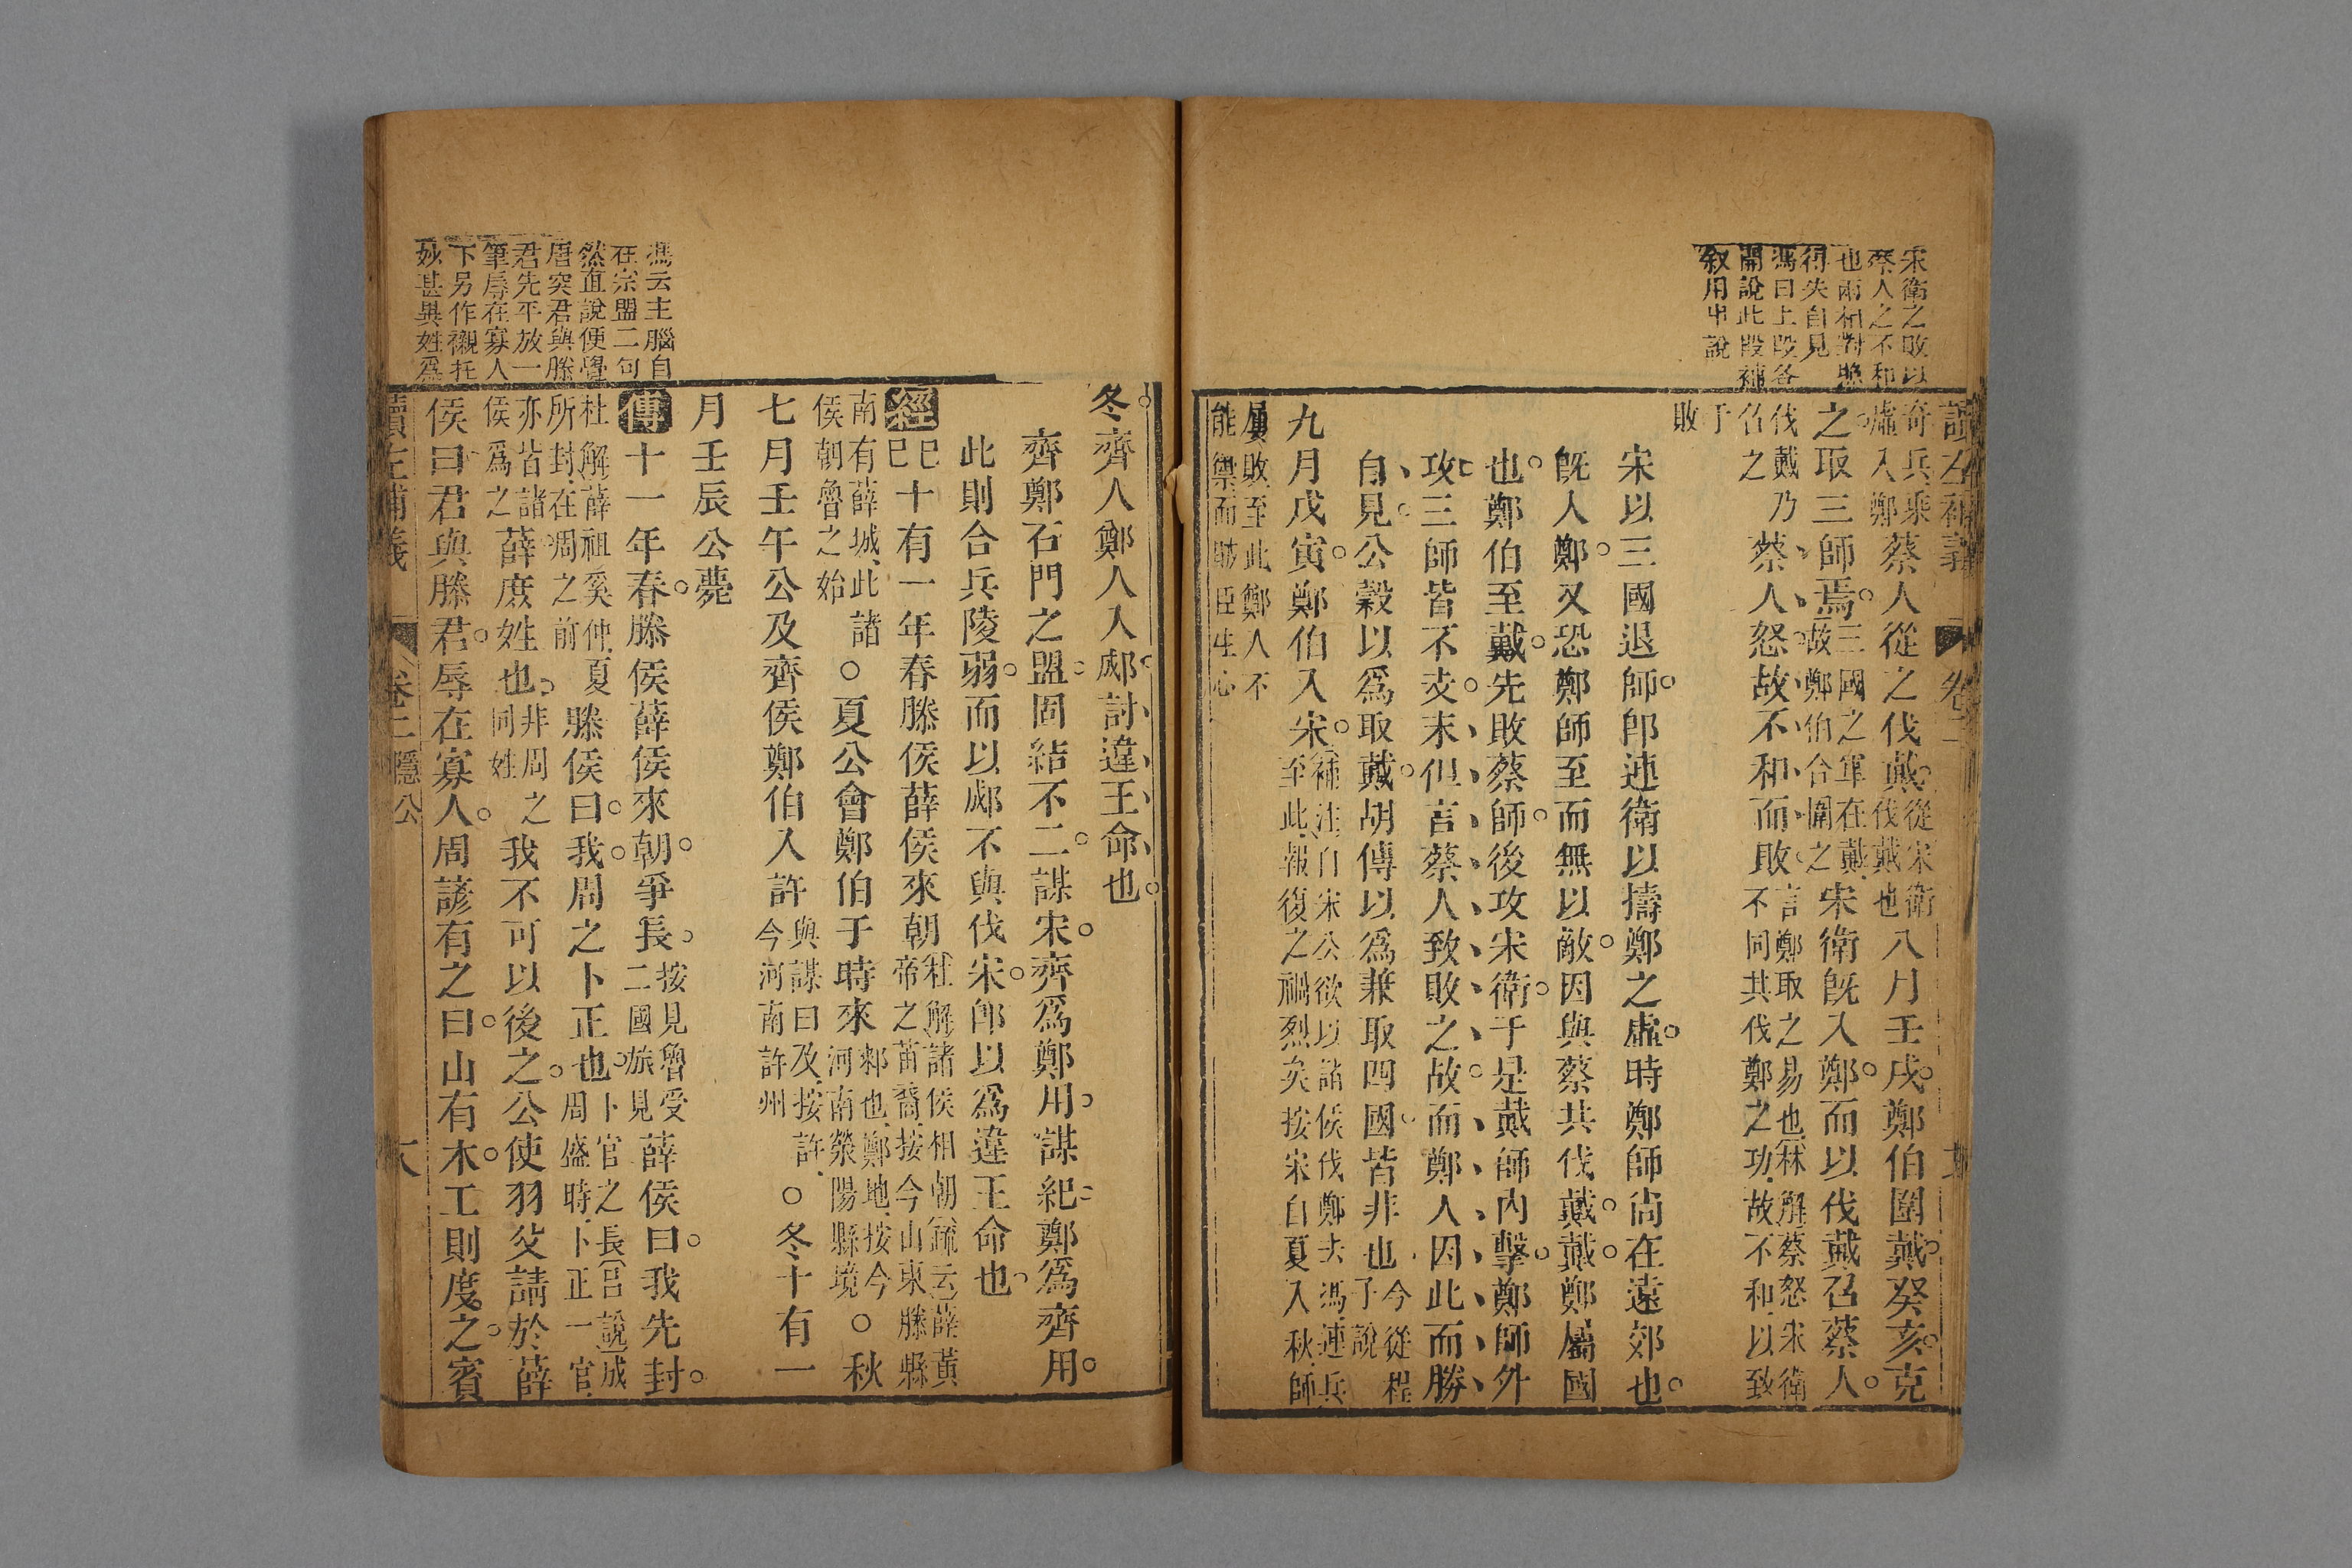 宋衛之敗以
蔡人之不和
也兩相對照
得失自見
馮曰上段各
開說此段補
敘用串說
讀左補義
卷二
奇兵乘
虛入鄭
蔡人從之伐戴
從宋衛
伐戴也
八月壬戌鄭伯圍戴癸亥克
之取三師焉
三國之軍在戴
故鄭伯合圍之
宋衛既入鄭而以伐戴召蔡人
伐戴乃
召之
蔡人怒故不和而敗
言鄭取之易也林解蔡怒宋衛
不同其伐鄭之功故不和以致
于
敗
宋以三國退師郎連衛以擣鄭之虛時鄭師尚在遠郊也
既入鄭又恐鄭師至而無以敵因與蔡共伐戴戴鄭屬國
也鄭伯至戴先敗蔡師後攻宋衛于是戴師內擊鄭師外
攻三師皆不支末但言蔡人致敗之故而鄭人因此而勝
自見公穀以爲取戴胡傳以爲兼取四國皆非也
今從程
子說
九月戊寅鄭伯入宋
補注自宋公欲以諸侯伐鄭去馮連兵
至此報復之禍烈矣按宋自夏入秋師
屢敗至此鄭人不
能禦而賊臣生心
冬齊人鄭人入郕討違王命也
齊鄭石門之盟固結不二謀宋齊爲鄭用謀紀鄭爲齊用
此則合兵陵弱而以郕不與伐宋郎以爲違王命也
經
己
巳
十有一年春滕侯薛侯來朝
杜解諸侯相朝疏云薛黃
帝之苗裔按今山東滕縣
南有薛城此諸
侯朝魯之始
○夏公會鄭伯于時來
郲也鄭地按今
河南滎陽縣境
○秋
七月壬午公及齊侯鄭伯入許
與謀曰及按許
今河南許州
○冬十有一
月壬辰公薨
傳十一年春滕侯薛侯來朝爭長
按見魯受
二國旅見
薛侯曰我先封
杜解薛祖奚仲夏
所封在周之前
滕侯曰我周之卜正也
卜官之長呂說成
周盛時卜正一官
亦皆諸
侯爲之
薛庶姓也
非周之
同姓
我不可以後之公使羽父請於薛
侯曰君與滕君辱在寡人周諺有之曰山有木工則度之賓
讀左補義
卷二
隱公
馮云主腦自
在宗盟二句
然直說便覺
唐突君與滕
君先平放一
筆辱在寡人
下另作襯托
妙甚異姓爲